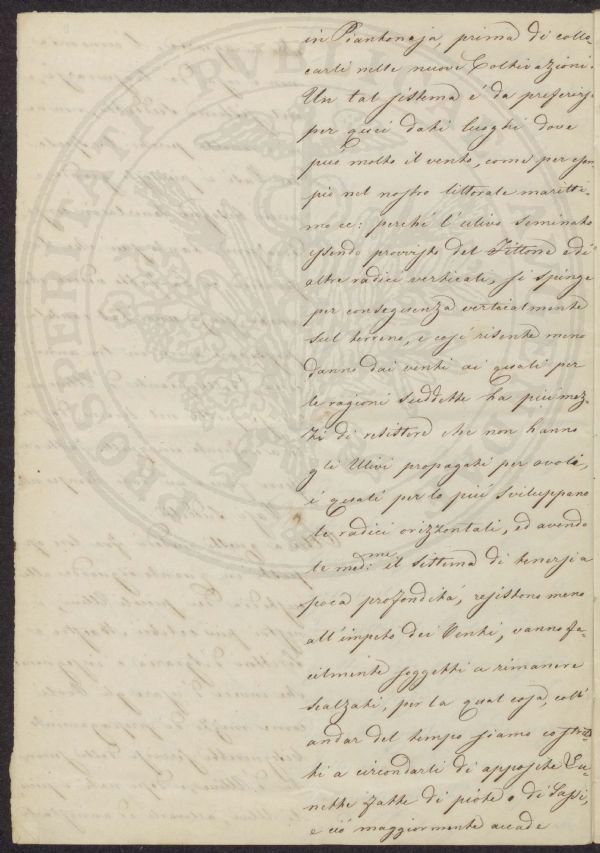 in Piantonaja, prima di collo-
carli nelle nuove Coltivazioni.
Un tal sistema é da preferirsi
per quei dati luoghi dove
può molto il vento, come per esem-
pio nel nostro littorale maritti-
mo ec: perché l'ulivo seminato
essendo provvisto del Fittone e di
altre radici verticali, si spinge
per conseguenza verticalmente
sul terreno, e così risente meno
danno dai venti ai quali per
le ragioni suddette ha più mez-
zi di resistere che non hanno
gli Ulivi propagati per ovoli,
i quali per lo più sviluppano
le radici orizzontali, ed avendo
le med:me il sistema di tenersi a
poca profondità, resistono meno
all'impeto dei Venti, vanno fa-
cilmente soggetti a rimanere
scalzati, per la qual cosa, coll'
andar del tempo siamo costret-
ti a circondarli di apposite Lu-
nette fatte di piote o di Sassi,
e ciò maggiormente accade
PROSPERITATI PVB